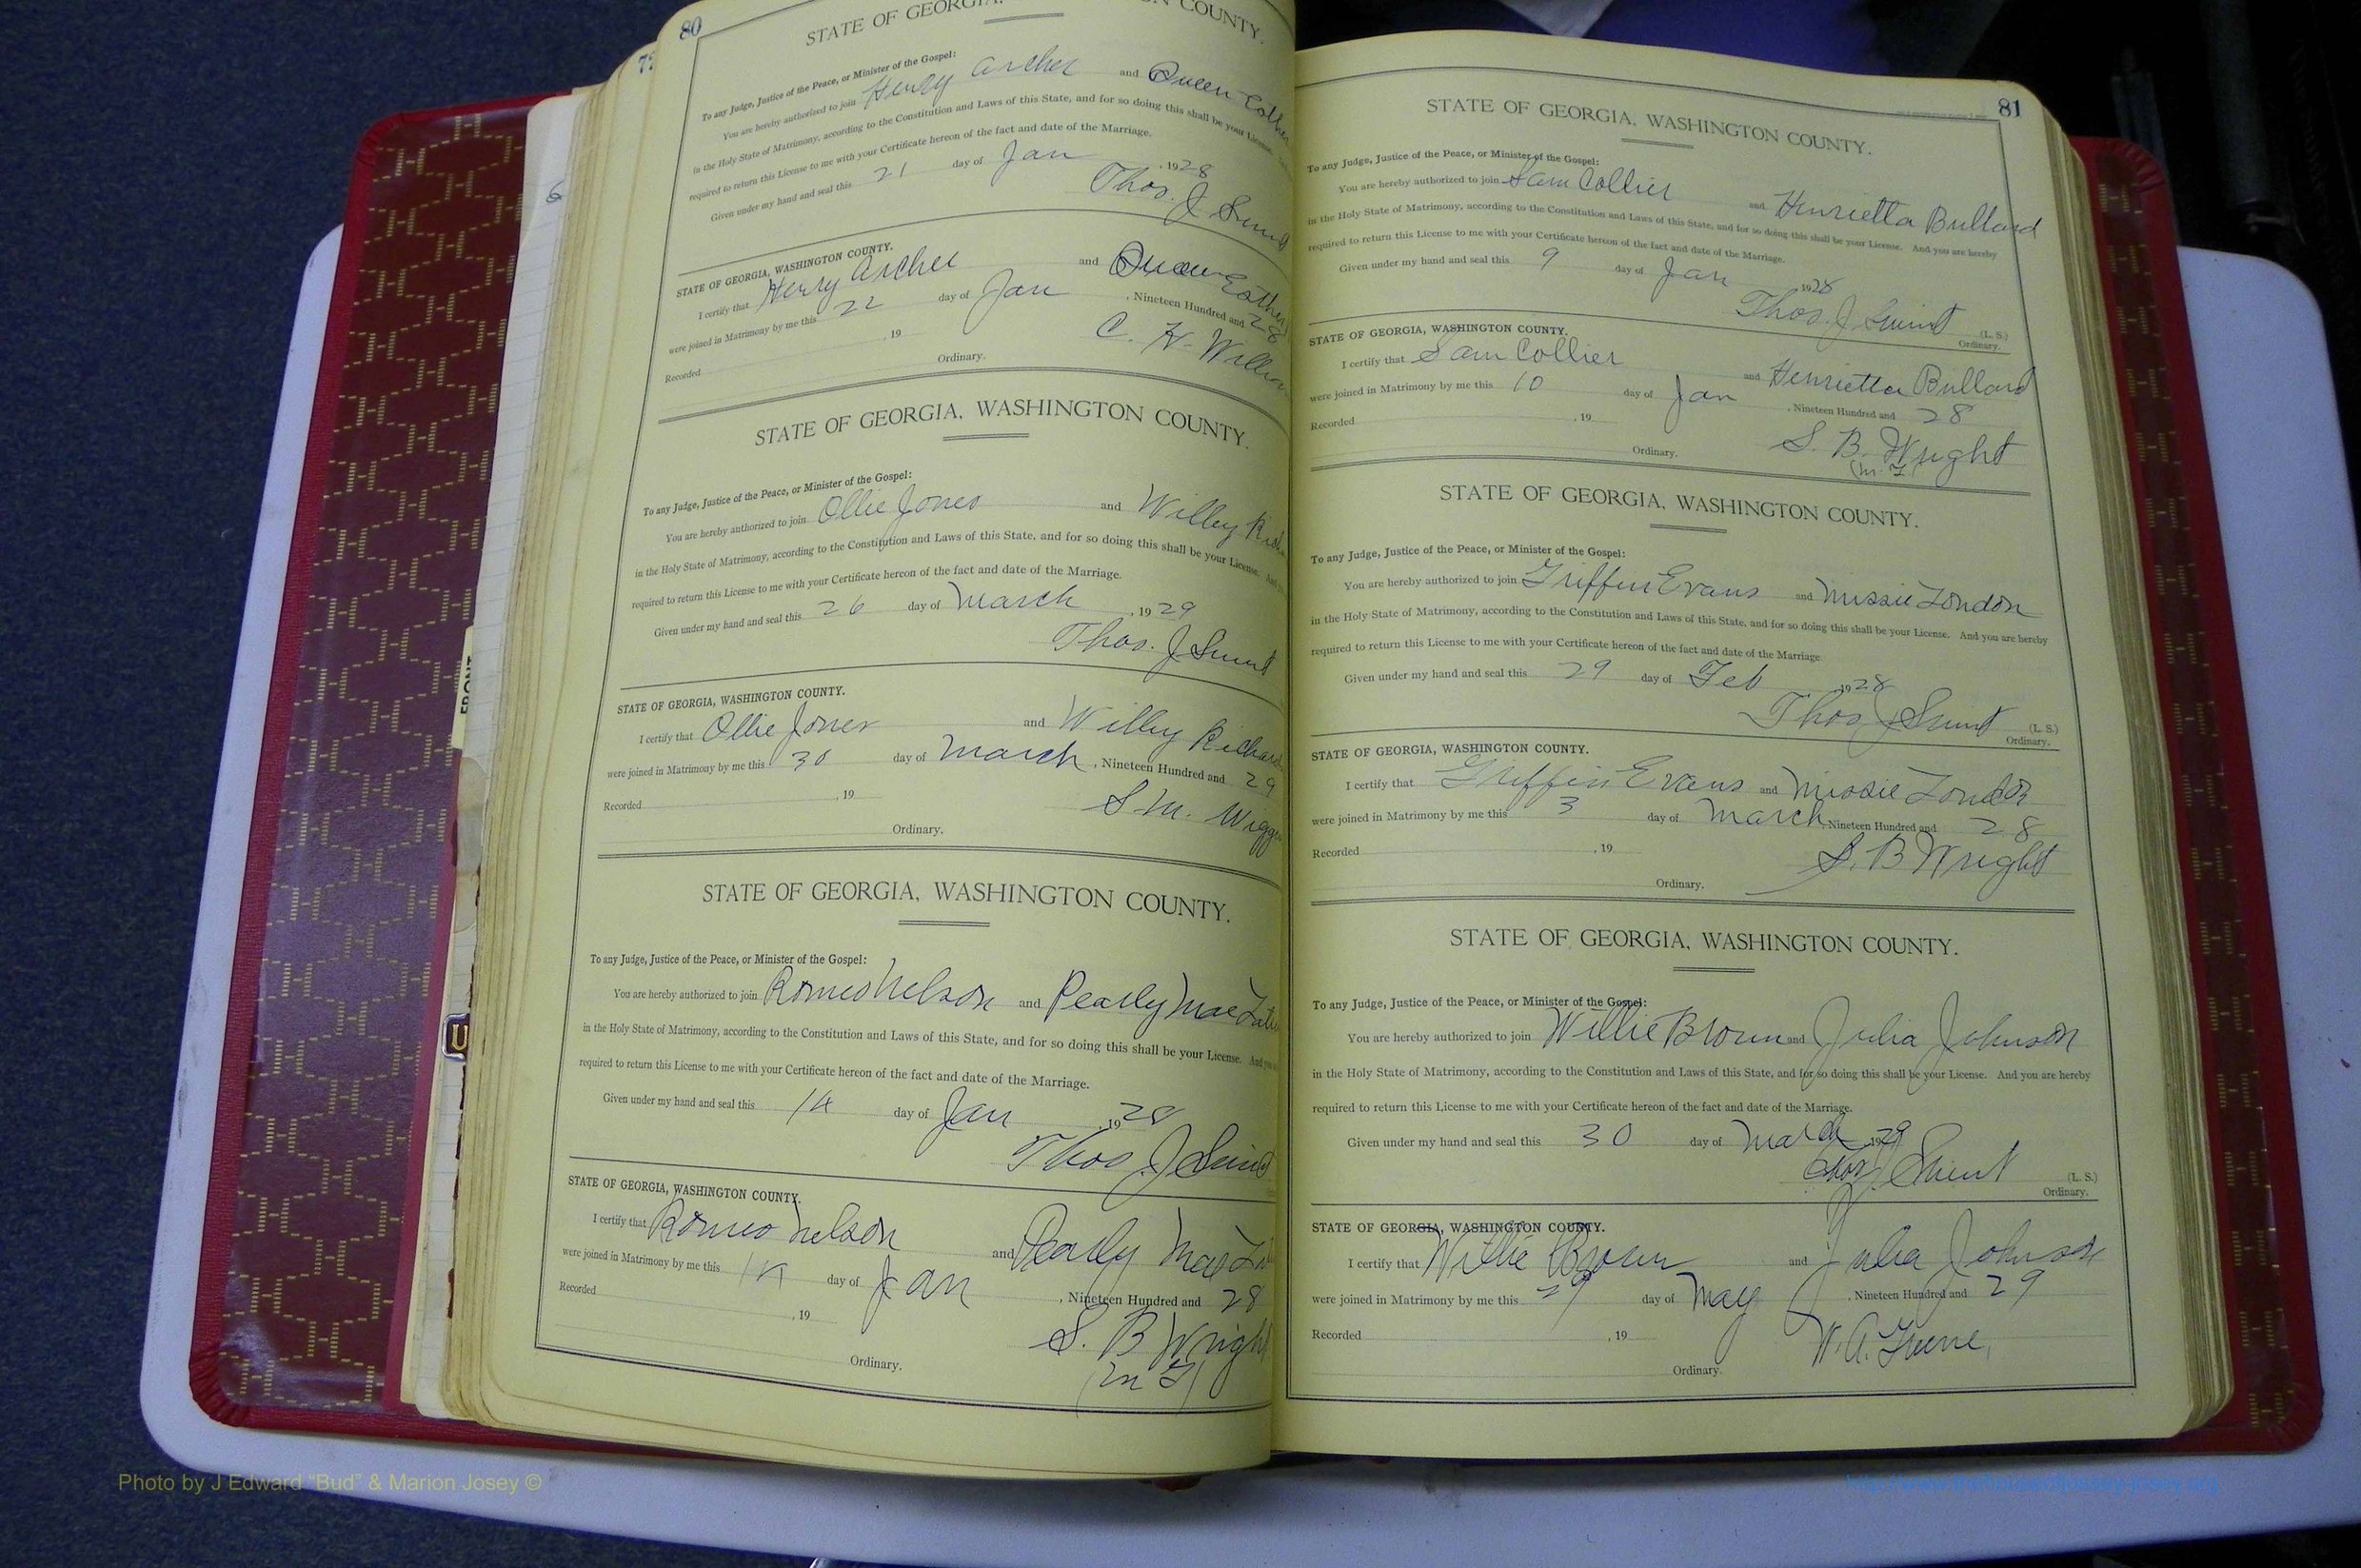 80
STATE OF GEORGIA, COUNTY.
To any Judge, Justice of the Peace, or Minister of the Gospel:
You are hereby authorized to join Henry Archer and Queen
in the Holy State of Matrimony, according to the Constitution and Laws of this State, and for so doing this shall be your License.
required to return this License to me with your Certificate hereon of the fact and date of the Marriage.
Given under my hand and seal this 21 day of Jan , 1928
Thos. J. Swint
STATE OF GEORGIA, WASHINGTON COUNTY.
I certify that Henry Archer and Queen
were joined in Matrimony by me this 22 day of Jan , Nineteen Hundred and 28
Recorded , 19
C. H.
Ordinary.
STATE OF GEORGIA, WASHINGTON COUNTY.
To any Judge, Justice of the Peace, or Minister of the Gospel:
You are hereby authorized to join Ollie Jones and Willey
in the Holy State of Matrimony, according to the Constitution and Laws of this State, and for so doing this shall be your License. And
required to return this License to me with your Certificate hereon of the fact and date of the Marriage.
Given under my hand and seal this 26 day of March , 1929
Thos. J Swint
STATE OF GEORGIA, WASHINGTON COUNTY.
I certify that Ollie Jones and Willey
were joined in Matrimony by me this 30 day of March , Nineteen Hundred and 29
Recorded , 19
S. M.
Ordinary.
STATE OF GEORGIA, WASHINGTON COUNTY.
To any Judge, Justice of the Peace, or Minister of the Gospel:
You are hereby authorized to join Romeo Nelson and Pearly Mae
in the Holy State of Matrimony, according to the Constitution and Laws of this State, and for so doing this shall be your License. And
required to return this License to me with your Certificate hereon of the fact and date of the Marriage.
Given under my hand and seal this 14 day of Jan , 1928
Thos. J Swint
STATE OF GEORGIA, WASHINGTON COUNTY.
I certify that Romeo Nelson and Pearly Mae
were joined in Matrimony by me this 14 day of Jan , Nineteen Hundred and 28
Recorded , 19
S. B Wright
(M G)
Ordinary.
81
STATE OF GEORGIA, WASHINGTON COUNTY.
To any Judge, Justice of the Peace, or Minister of the Gospel:
You are hereby authorized to join Sam Collier and Henrietta Bullard
in the Holy State of Matrimony, according to the Constitution and Laws of this State, and for so doing this shall be your License. And you are hereby
required to return this License to me with your Certificate hereon of the fact and date of the Marriage.
Given under my hand and seal this 9 day of Jan 1928
Thos. J Swint (L. S.)
Ordinary.
STATE OF GEORGIA, WASHINGTON COUNTY.
I certify that Sam Collier and Henrietta Bullard
were joined in Matrimony by me this 10 day of Jan , Nineteen Hundred and 28
Recorded , 19
S. B. Wright
(M. G
Ordinary.
STATE OF GEORGIA, WASHINGTON COUNTY.
To any Judge, Justice of the Peace, or Minister of the Gospel:
You are hereby authorized to join Griffin Evans and Missie London
in the Holy State of Matrimony, according to the Constitution and Laws of this State, and for so doing this shall be your License. And you are hereby
required to return this License to me with your Certificate hereon of the fact and date of the Marriage
Given under my hand and seal this 29 day of Feb 1928
Thos J Swint (L. S.)
Ordinary.
STATE OF GEORGIA, WASHINGTON COUNTY.
I certify that Griffin Evans and Missie London
were joined in Matrimony by me this 3 day of March, Nineteen Hundred and 28
Recorded , 19
S. B Wright
Ordinary.
STATE OF GEORGIA, WASHINGTON COUNTY.
To any Judge, Justice of the Peace, or Minister of the Gospel:
You are hereby authorized to join Willie Brown and Julia Johnson
in the Holy State of Matrimony, according to the Constitution and Laws of this State, and for so doing this shall be your License. And you are hereby
required to return this License to me with your Certificate hereon of the fact and date of the Marriage.
Given under my hand and seal this 30 day of March 1929
Thos J Swint (L. S.)
Ordinary.
STATE OF GEORGIA, WASHINGTON COUNTY.
I certify that Willie Brown and Julia Johnson
were joined in Matrimony by me this 29 day of May , Nineteen Hundred and 29
Recorded , 19
W. A. Greene,
Ordinary.
FRONT
Photo by J Edward "Bud" & Marion Josey ©